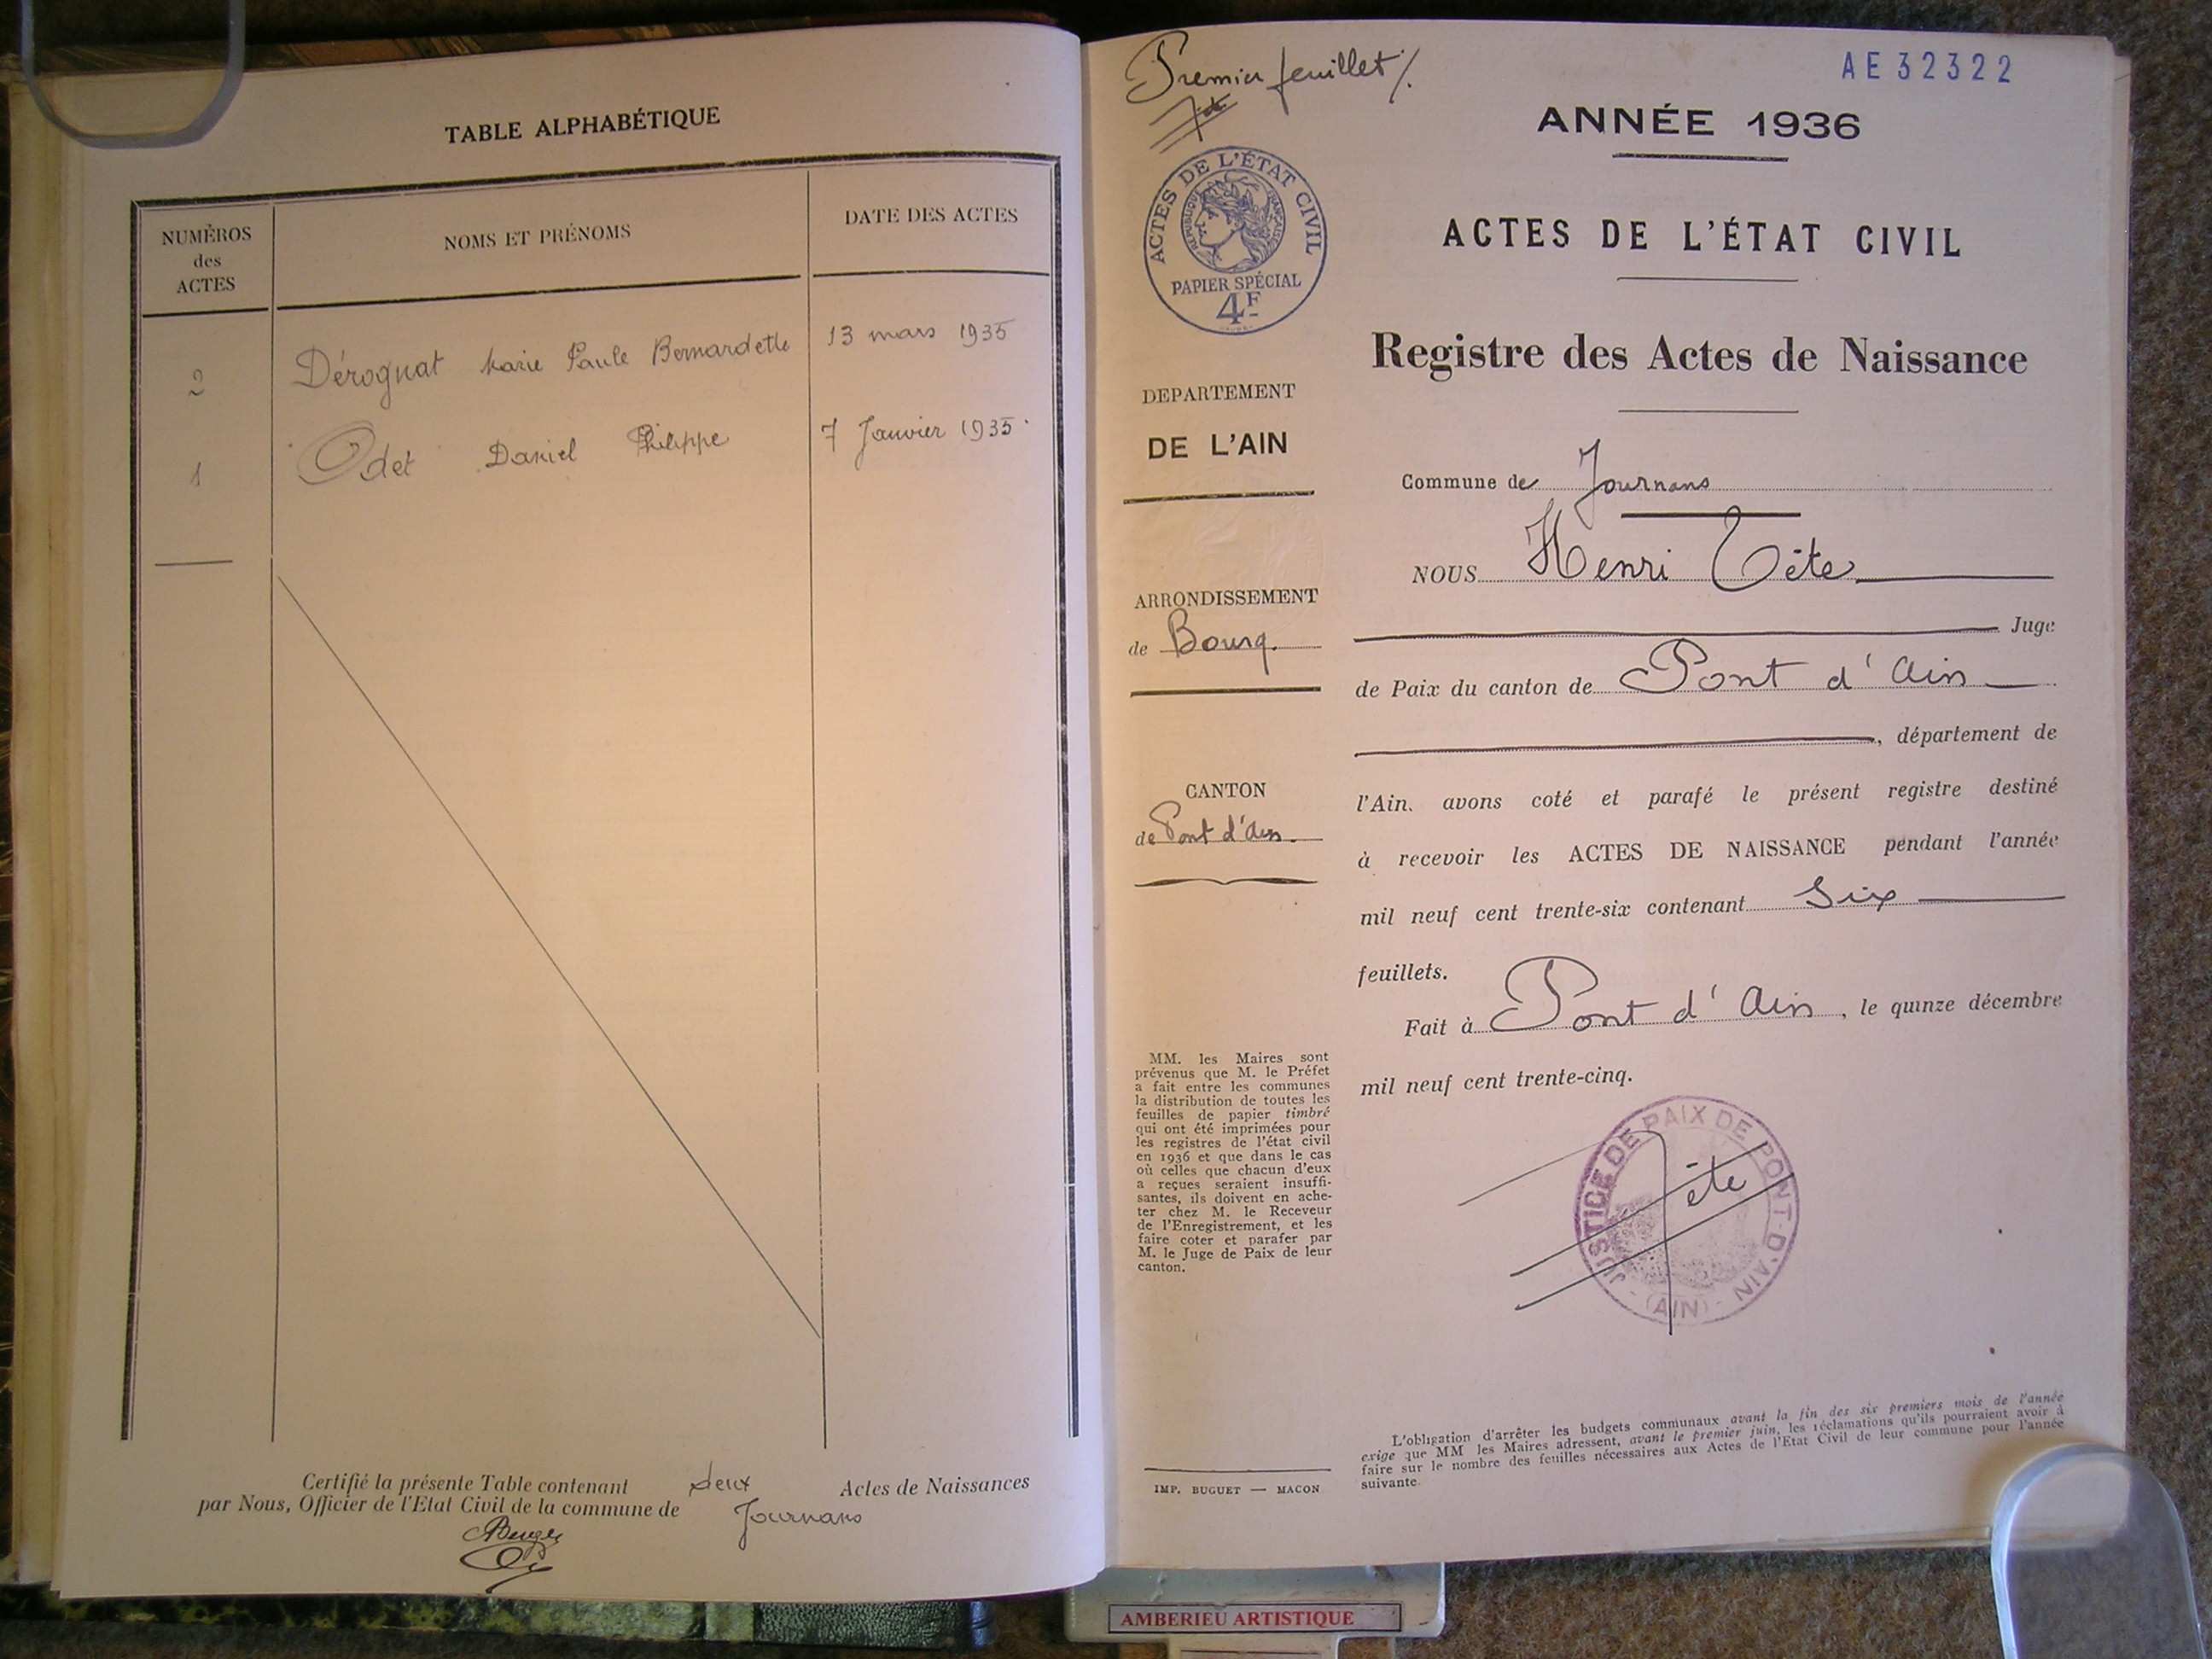 TABLE ALPHABÉTIQUE
NUMÉROS
des
ACTES
NOMS ET PRÉNOMS
DATE DES ACTES
2 Dérognat Marie Paule Bernardette 13 mars 1935
1 Odet Daniel Philippe 7 Janvier 1935
Certifié la présente Table contenant deux Actes de Naissances
par Nous, Officier de l'Etat Civil de la commune de Journans
Premier feuillet
AE32322
ANNÉE 1936
ACTES DE L'ÉTAT CIVIL
RÉPUBLIQUE FRANÇAISE
PAPIER SPÉCIAL
4F
ACTES DE L'ÉTAT CIVIL
Registre des Actes de Naissance
DEPARTEMENT
DE L'AIN
ARRONDISSEMENT
de Bourg.
CANTON
de Pont d'Ain.
Commune de Journans
NOUS Henri Tête
Juge
de Paix du canton de Pont d'Ain
, département de
l'Ain, avons coté et parafé le présent registre destiné
à recevoir les ACTES DE NAISSANCE pendant l'année
mil neuf cent trente-six contenant Six
feuillets.
Fait à Pont d'Ain, le quinze décembre
mil neuf cent trente-cinq.
JUSTICE DE PAIX DE PONT-D'AIN
(AIN)
Tête
MM. les Maires sont
prévenus que M. le Préfet
a fait entre les communes
la distribution de toutes les
feuilles de papier timbré
qui ont été imprimées pour
les registres de l'état civil
en 1936 et que dans le cas
où celles que chacun d'eux
a reçues seraient insuffi-
santes, ils doivent en ache-
ter chez M. le Receveur
de l'Enregistrement, et les
faire coter et parafer par
M. le Juge de Paix de leur
canton.
IMP. BUGUET — MACON
L'obligation d'arrêter les budgets communaux avant la fin des six premiers mois de l'année
exige que MM les Maires adressent, avant le premier juin, les réclamations qu'ils pourraient avoir à
faire sur le nombre des feuilles nécessaires aux Actes de l'Etat Civil de leur commune pour l'année
suivante.
AMBERIEU ARTISTIQUE